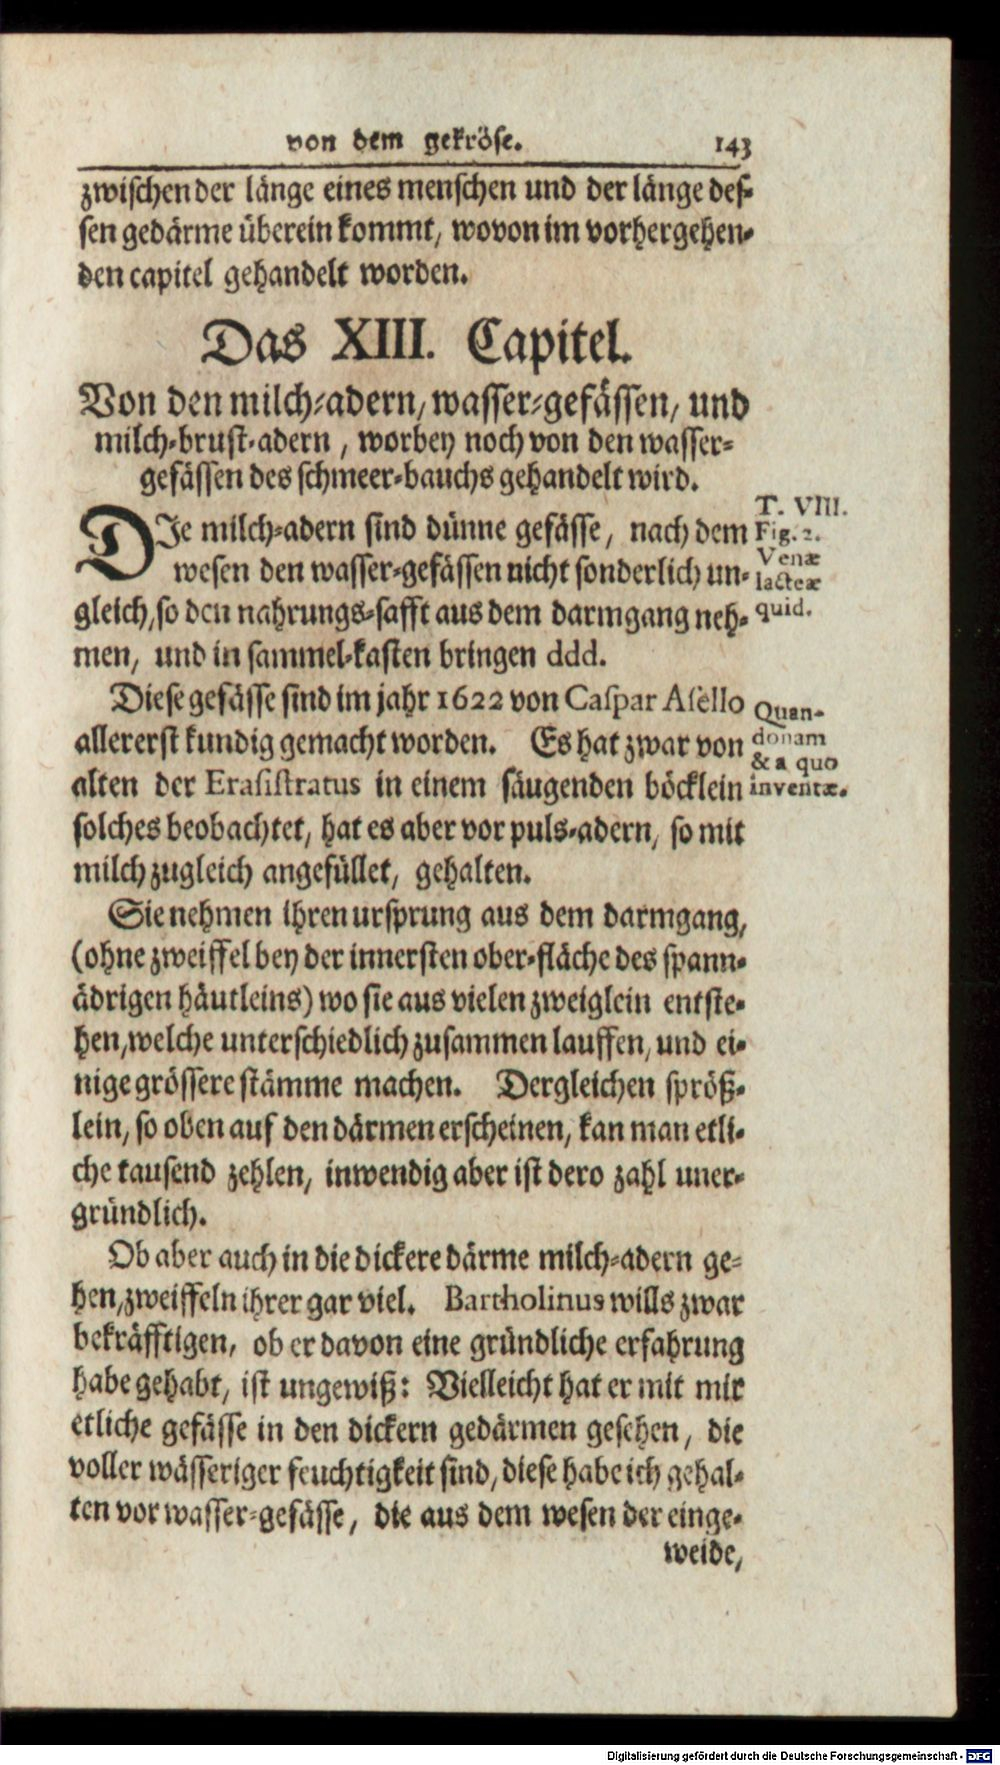 von dem gekröse. 143
zwischen der länge eines menschen und der länge des-
sen gedärme überein kommt, wovon im vorhergehen-
den capitel gehandelt worden.
Das XIII. Capitel.
Von den milch-adern, wasser-gefässen, und
milch-brust-adern, worbey noch von den wasser-
gefässen des schmeer-bauchs gehandelt wird.
DIe milch-adern sind dünne gefässe, nach dem
wesen den wasser-gefässen nicht sonderlich un-
gleich, so den nahrungs-safft aus dem darmgang neh-
men, und in sammel-kasten bringen ddd.
T. VIII.
Fig. 2.
Venæ
lacteæ
quid.
Diese gefässe sind im jahr 1622 von Caspar Asello
allererst kundig gemacht worden. Es hat zwar von
alten der Erasistratus in einem säugenden böcklein
solches beobachtet, hat es aber vor puls-adern, so mit
milch zugleich angefüllet, gehalten.
Quan-
donam
& a quo
inventæ.
Sie nehmen ihren ursprung aus dem darmgang,
(ohne zweiffel bey der innersten ober-fläche des spann-
ädrigen häutleins) wo sie aus vielen zweiglein entste-
hen, welche unterschiedlich zusammen lauffen, und ei-
nige grössere stämme machen. Dergleichen spröß-
lein, so oben auf den därmen erscheinen, kan man etli-
che tausend zehlen, inwendig aber ist dero zahl uner-
gründlich.
Ob aber auch in die dickere därme milch-adern ge-
hen, zweiffeln ihrer gar viel. Bartholinus wills zwar
bekräfftigen, ob er davon eine gründliche erfahrung
habe gehabt, ist ungewiß: Vielleicht hat er mit mir
etliche gefässe in den dickern gedärmen gesehen, die
voller wässeriger feuchtigkeit sind, diese habe ich gehal-
ten vor wasser-gefässe, die aus dem wesen der einge-
weide,
Digitalisierung gefördert durch die Deutsche Forschungsgemeinschaft - DFG